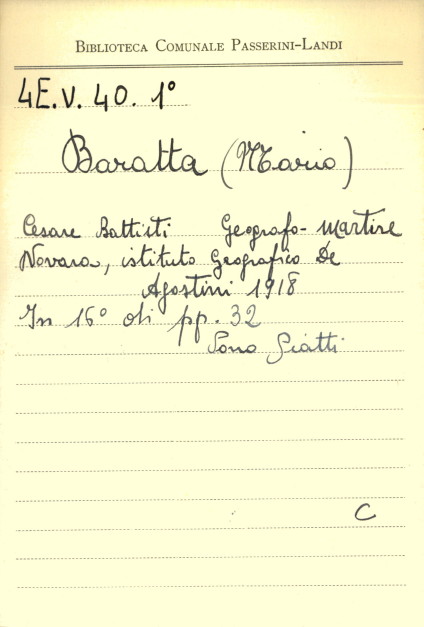 Biblioteca Comunale Passerini-Landi
4E.V. 40. 1°
Baratta (Mario)
Cesare Battisti Geografo-Martire
Novara, istituto Geografico De
Agostini 1918
In 16° di pp. 32
Dono Giatti
C